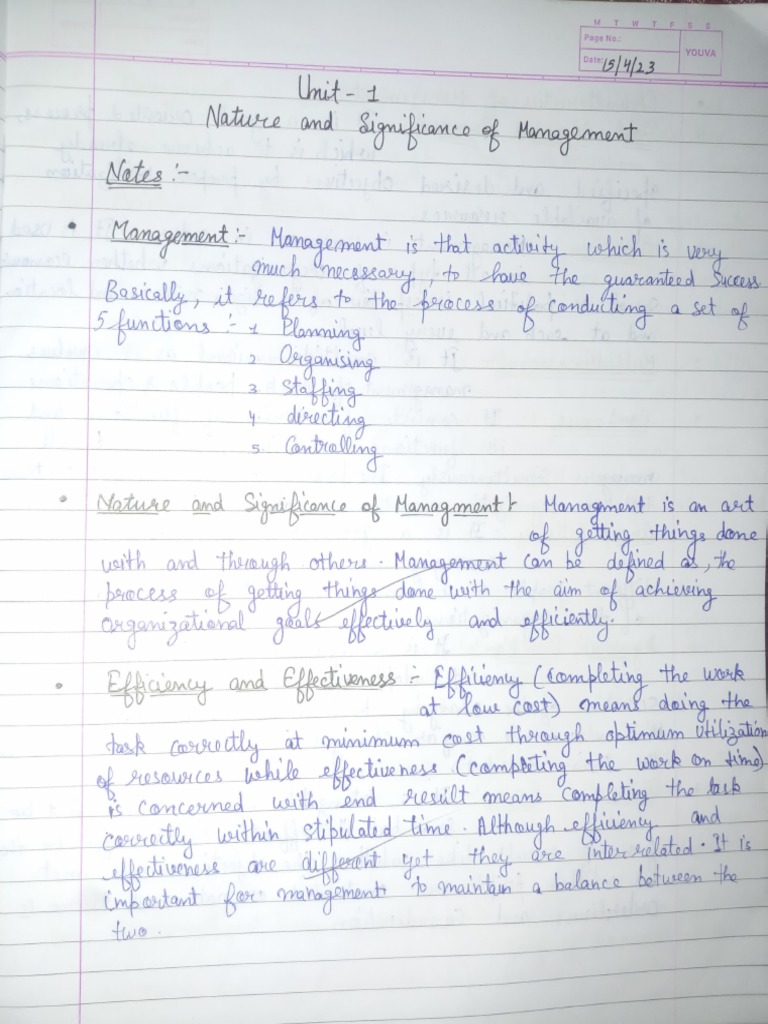 M T W T F S S
Page No.:
YOUVA
Date: 15/4/23
Unit - 1
Nature and Significance of Management
Notes :-
• Management :- Management is that activity which is very
much necessary to have the guaranteed Success
Basically, it refers to the process of conducting a set of
5 functions :- 1 Planning
2 Organising
3 Staffing
4 directing
5 Controlling
• Nature and Significance of Managment :- Managment is an art
of getting things done
with and through others. Management can be defined as, the
process of getting things done with the aim of achieving
organizational goals effectively and efficiently.
• Efficiency and Effectiveness :- Efficiency (completing the work
at low cost) means doing the
task correctly at minimum cost through optimum utilization
of resources while effectiveness (completing the work on time)
is concerned with end result means completing the task
correctly within stipulated time. Although efficiency and
effectiveness are different yet they are interrelated. It is
important for management to maintain a balance between the
two.